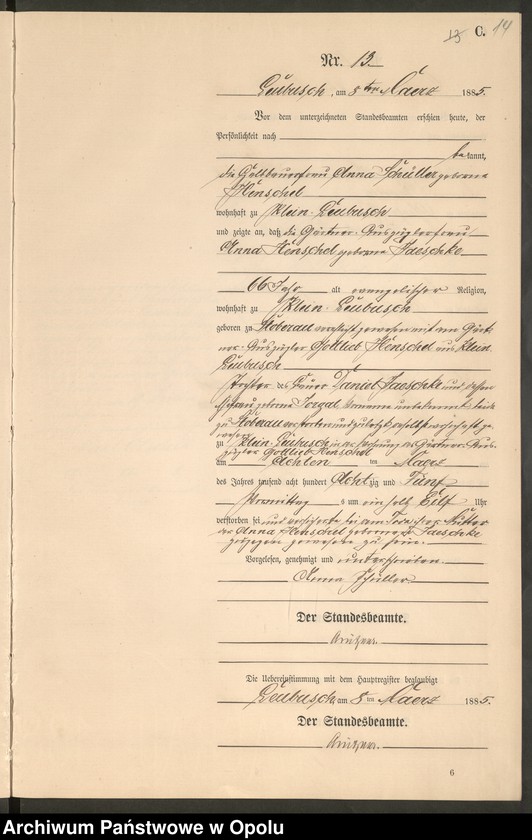 13 C. 14
Nr. 13.
Leubusch, am 8 ten Maerz 1885.
Vor dem unterzeichneten Standesbeamten erschien heute, der
Persönlichkeit nach
bekannt,
die Anna Schüller geborene
Henschel
wohnhaft zu Klein-Leubusch
und zeigte an, daß die Gärtner-Auszüglerfrau
Anna Henschel geborene Jaeschke
66 Jahr alt evangelischer Religion,
wohnhaft zu Klein-Leubusch
geboren zu Stoberau verheirathet gewesen mit dem Gärt
ner-Auszügler Gottlieb Henschel aus Klein
Leubusch
Tochter des Bauer Daniel Jaeschke und dessen
Ehefrau geborene Vorname unbekannt beide
zu Stoberau verstorben und zuletzt daselbst wohnhaft ge-
wesen
zu Klein-Leubusch in der Wohnung des Gärtner-Aus-
zügler Gottlieb Henschel
am Achten ten Maerz
des Jahres tausend acht hundert Acht zig und Fünf
Vormittag s um ein halb Eilf Uhr
verstorben sei und versicherte bei dem Tode ihrer Mutter
der Anna Henschel geborenen Jaeschke
zugegen gewesen zu sein.
Vorgelesen, genehmigt und unterschrieben
Anna Schüller
Der Standesbeamte.
Die Uebereinstimmung mit dem Hauptregister beglaubigt
Leubusch, am 8 ten Maerz 1885.
Der Standesbeamte.
6
Archiwum Państwowe w Opolu